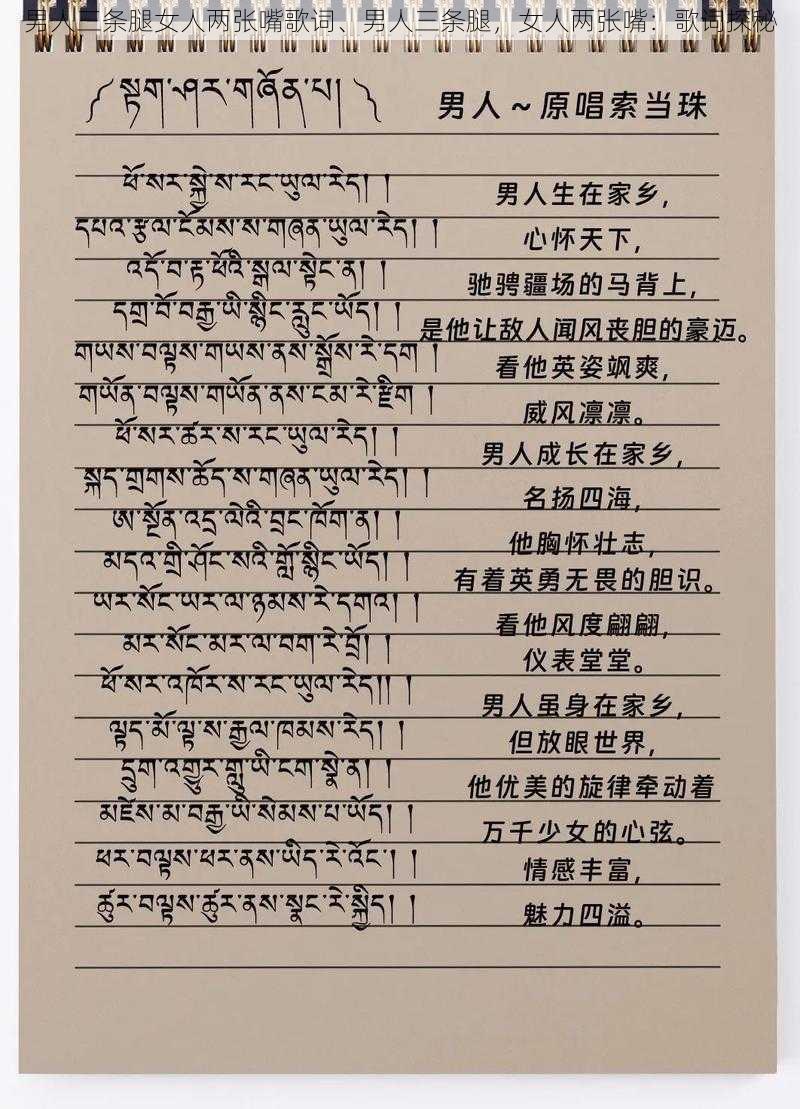 男人三条腿女人两张嘴歌词、男人三条腿，女人两张嘴：歌词探秘
༼ སྟག་ཤར་གཞོན་པ། ༽ 男人～原唱索当珠
ཕོ་སར་སྐྱེ་ས་རང་ཡུལ་རེད། །
男人生在家乡，
དཔའ་རྩལ་ངོམས་ས་གཞན་ཡུལ་རེད། །
心怀天下，
འདོ་བ་རྟ་ཕོའི་སྒལ་སྟེང་ན། །
驰骋疆场的马背上，
དགྲ་བོ་བརྒྱ་ཡི་སྙིང་རླུང་ཡོད། །
是他让敌人闻风丧胆的豪迈。
གཡས་བལྟས་གཡས་ནས་སྒྲོས་རེ་དག །
看他英姿飒爽，
གཡོན་བལྟས་གཡོན་ནས་ངམ་རེ་རྫིག །
威风凛凛。
ཕོ་སར་ཚར་ས་རང་ཡུལ་རེད། །
男人成长在家乡，
སྐད་གྲགས་ཆོད་ས་གཞན་ཡུལ་རེད། །
名扬四海，
ཨ་སྔོན་འདྲ་ལེའི་བྲང་ཁོག་ན། །
他胸怀壮志，
མདའ་གྲི་ཤོང་སའི་གློ་སྙིང་ཡོད། །
有着英勇无畏的胆识。
ཡར་སོང་ཡར་ལ་ཉམས་རེ་དགའ། །
看他风度翩翩，
མར་སོང་མར་ལ་བག་རེ་བྲོ། །
仪表堂堂。
ཕོ་སར་འཁོར་ས་རང་ཡུལ་རེད།། །
男人虽身在家乡，
ལྟད་མོ་ལྟ་ས་རྒྱལ་ཁམས་རེད། །
但放眼世界，
དྲུག་འགྱུར་གླུ་ཡི་ངག་སྣེ་ན། །
他优美的旋律牵动着
མཛེས་མ་བརྒྱ་ཡི་སེམས་པ་ཡོད། །
万千少女的心弦。
ཕར་བལྟས་ཕར་ནས་ཡིད་རེ་འོང་། །
情感丰富，
ཚུར་བལྟས་ཚུར་ནས་སྣང་རེ་སྐྱིད། །
魅力四溢。